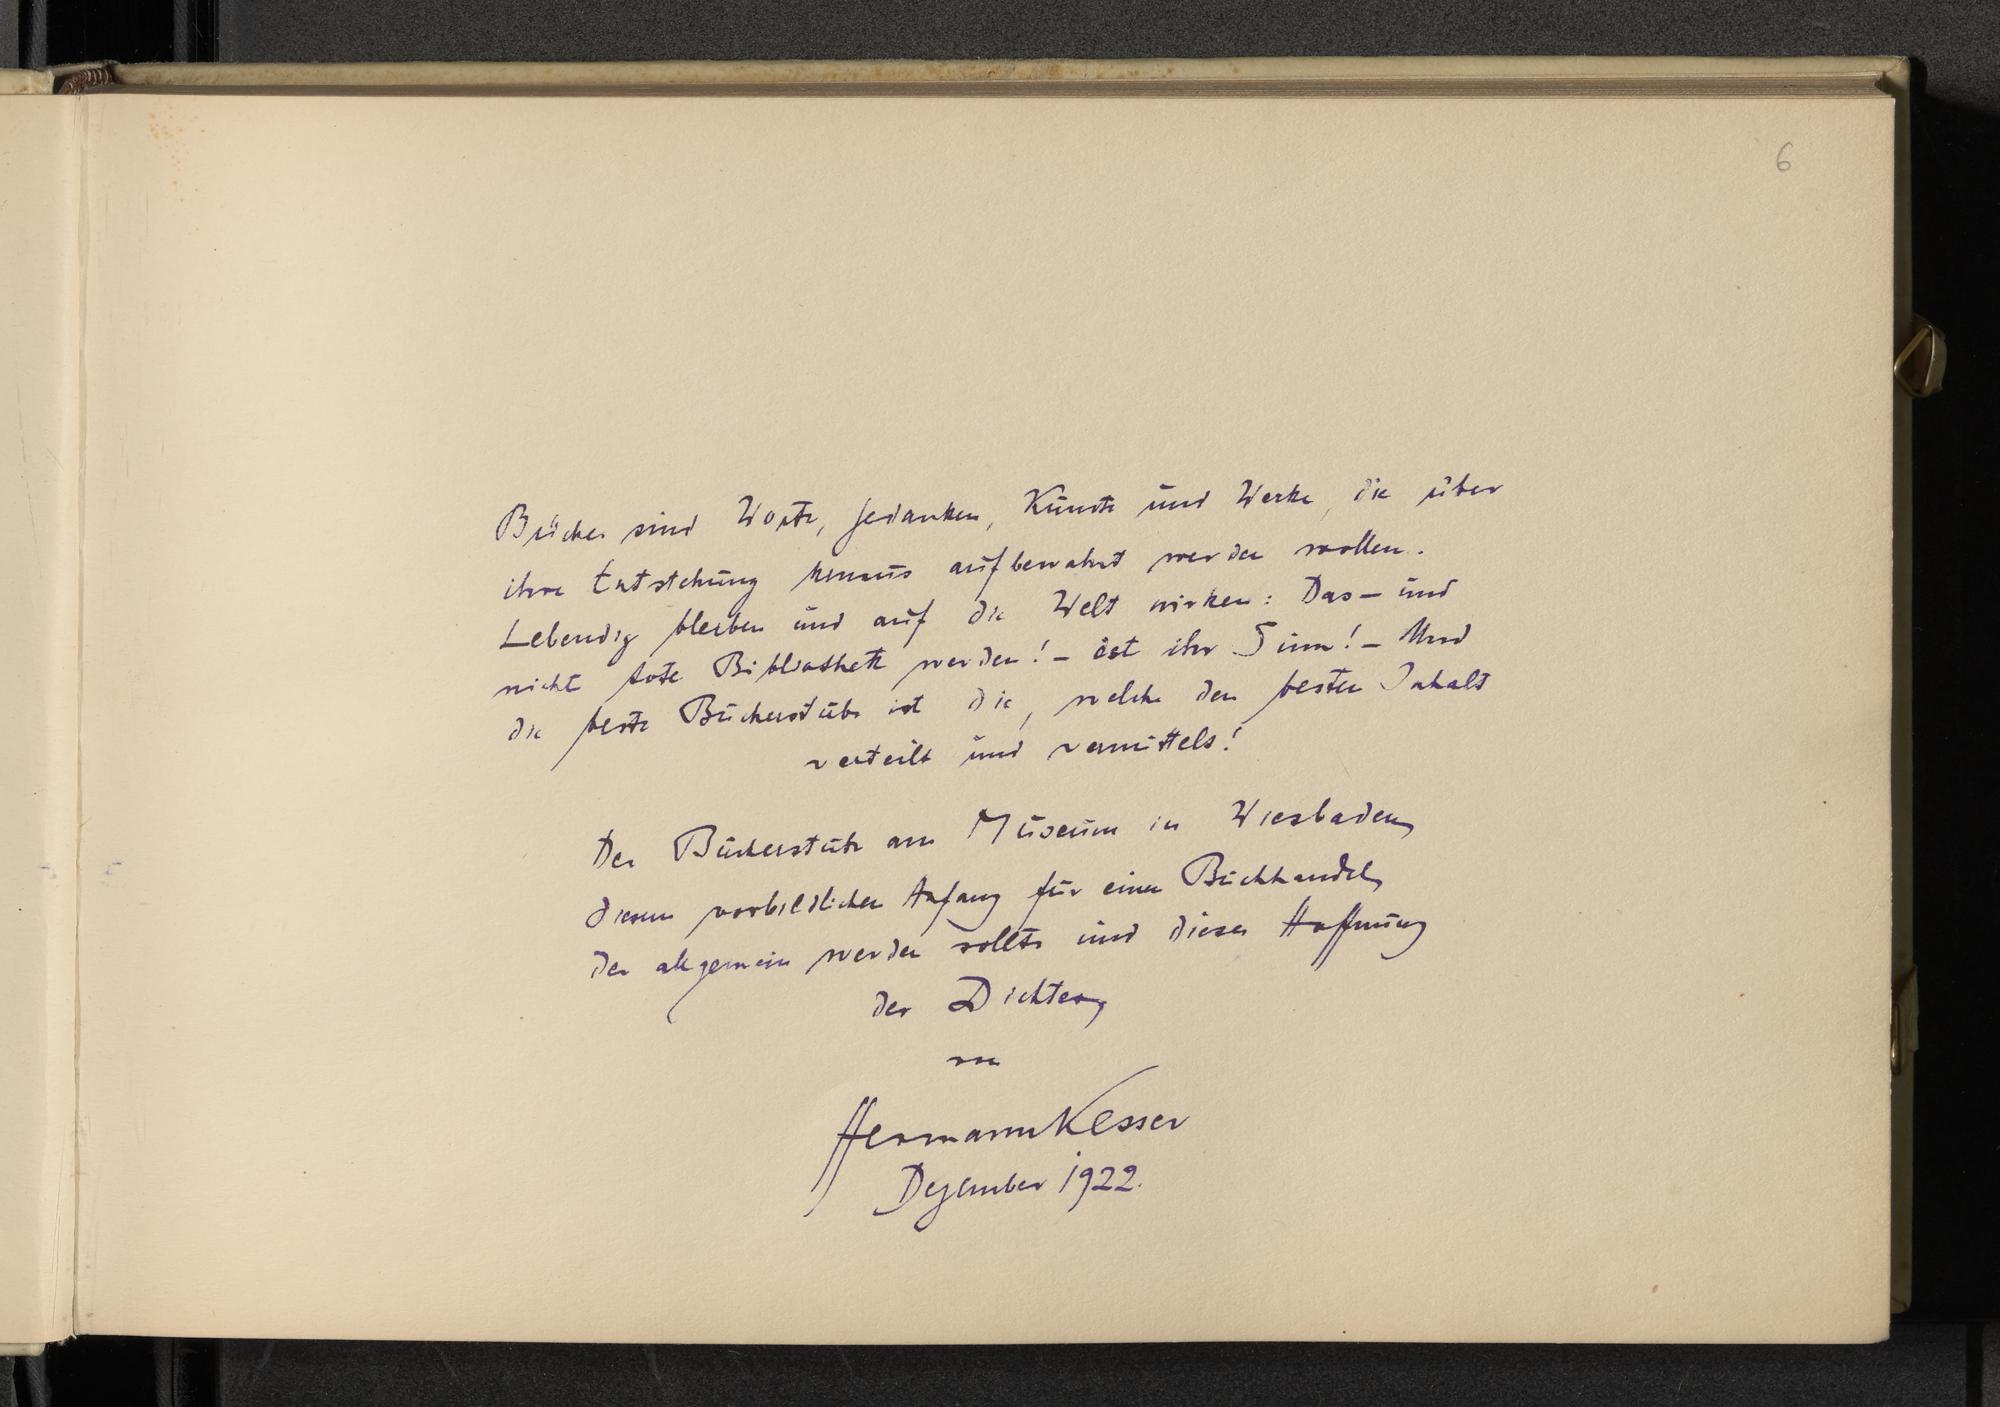 6
Bücher sind Worte, Gedanken, Künste und Werke, die über
ihre Entstehung hinaus aufbewahrt werden wollen.
Lebendig bleiben und auf die Welt wirken: Das – und
nicht tote Bibliothek werden! – ist ihr Sinn! – Und
die beste Bücherstube ist die, welche den besten Inhalt
verteilt und vermittelt!
Der Bücherstube am Museum in Wiesbaden,
diesem vorbildlichen Anfang für einen Buchhandel,
der allgemein werden sollte und dieser Hoffnung
der Dichter,
von
Hermann Kesser
Dezember 1922.